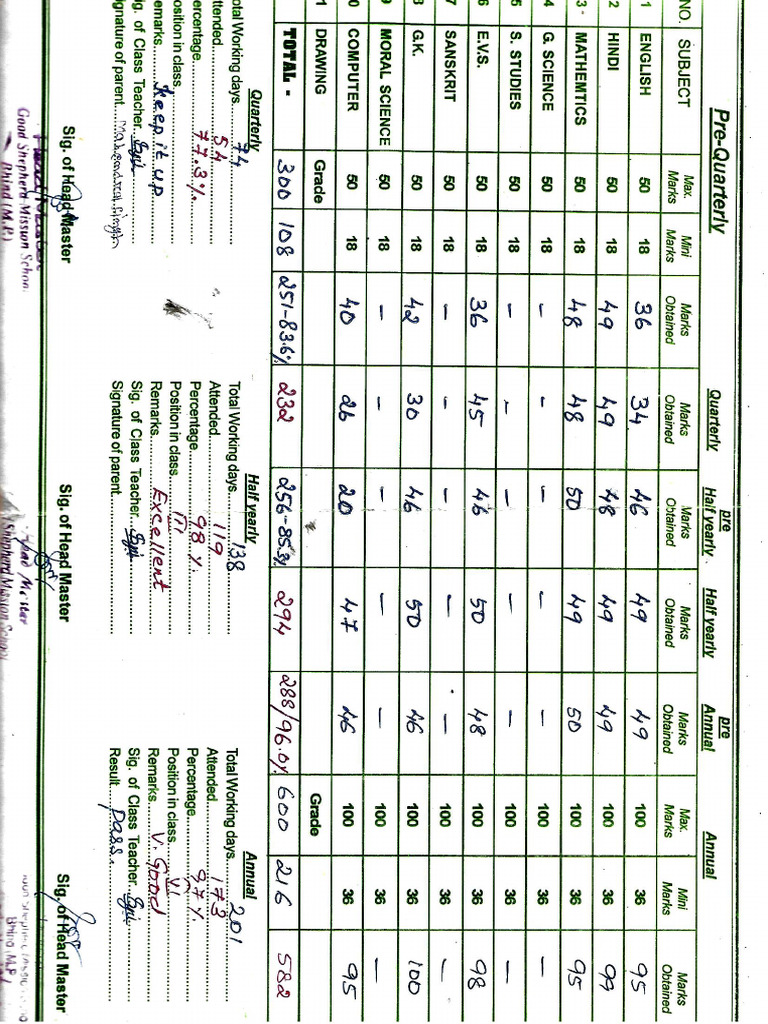 Pre-Quarterly Quarterly pre Half yearly Half yearly pre Annual Annual
NO. SUBJECT Max. Marks Mini Marks Marks Obtained Marks Obtained Marks Obtained Marks Obtained Marks Obtained Max. Marks Mini Marks Marks Obtained
1 ENGLISH 50 18 36 34 46 49 49 100 36 95
2 HINDI 50 18 49 49 48 49 49 100 36 99
3 - MATHEMTICS 50 18 48 48 50 49 50 100 36 95
4 G. SCIENCE 50 18 - - - - - 100 36 -
5 S. STUDIES 50 18 - - - - - 100 36 -
6 E.V.S. 50 18 36 45 46 50 48 100 36 98
7 SANSKRIT 50 18 - - - - - 100 36 -
8 G.K. 50 18 42 30 46 50 46 100 36 100
9 MORAL SCIENCE 50 18 - - - - - 100 36 -
0 COMPUTER 50 18 40 26 20 47 46 100 36 95
1 DRAWING Grade Grade
TOTAL - 300 108 251-83.6% 232 256-85.3% 294 288/96.0% 600 216 582
Quarterly
otal Working days 74
attended 54
ercentage 77.3%
osition in class
emarks Keep it up
ig. of Class Teacher
ignature of parent
Sig. of Head Master
Head Master
Good Shepherd Mission School
Bhind (M.P.)
Half yearly
Total Working days 138
Attended 119
Percentage 98%
Position in class III
Remarks Excellent
Sig. of Class Teacher
Signature of parent
Sig. of Head Master
Head Master
Shepherd Mission School
Annual
Total Working days 201
Attended 173
Percentage 97%
Position in class VI
Remarks V. Good
Sig. of Class Teacher
Result Pass.
Sig. of Head Master
Bhind (M.P.)